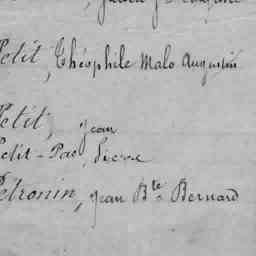 Petit, Théophile Malo Augustin
Petit, Jean
Petit-Pas, Pierre
Pétronin, Jean Bte Bernard